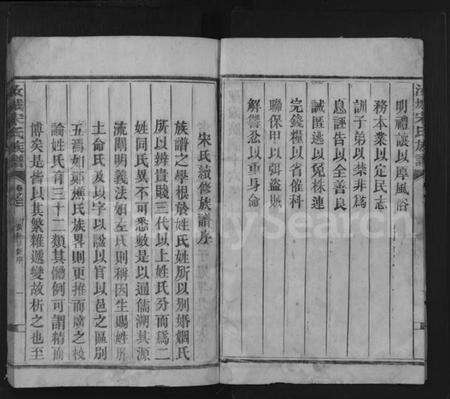 明禮讓以厚風俗
務本業以定民志
訓子弟以禁非為
息誣告以全善良
誡匿逃以免株連
完錢糧以省催科
聯保甲以弭盜賊
解讐忿以重身命
宋氏續修族譜序
族譜之學根於姓氏姓所以別婚姻氏
所以辨貴賤三代以上姓氏分而為二
姓同氏異不可悉數是以通儒溯其源
流期明義法如左氏則稱因生賜姓胙
土命氏及以字以諡以官以邑之區別
論姓氏有三十二類其儋例可謂精而
博矣是譜以其繁雜遞變故析之也至
汝城宋氏族譜